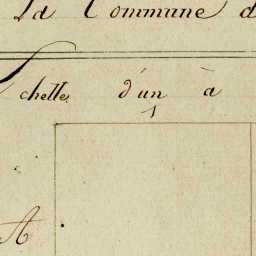 La Commune d
Echelle d'un à
1
A